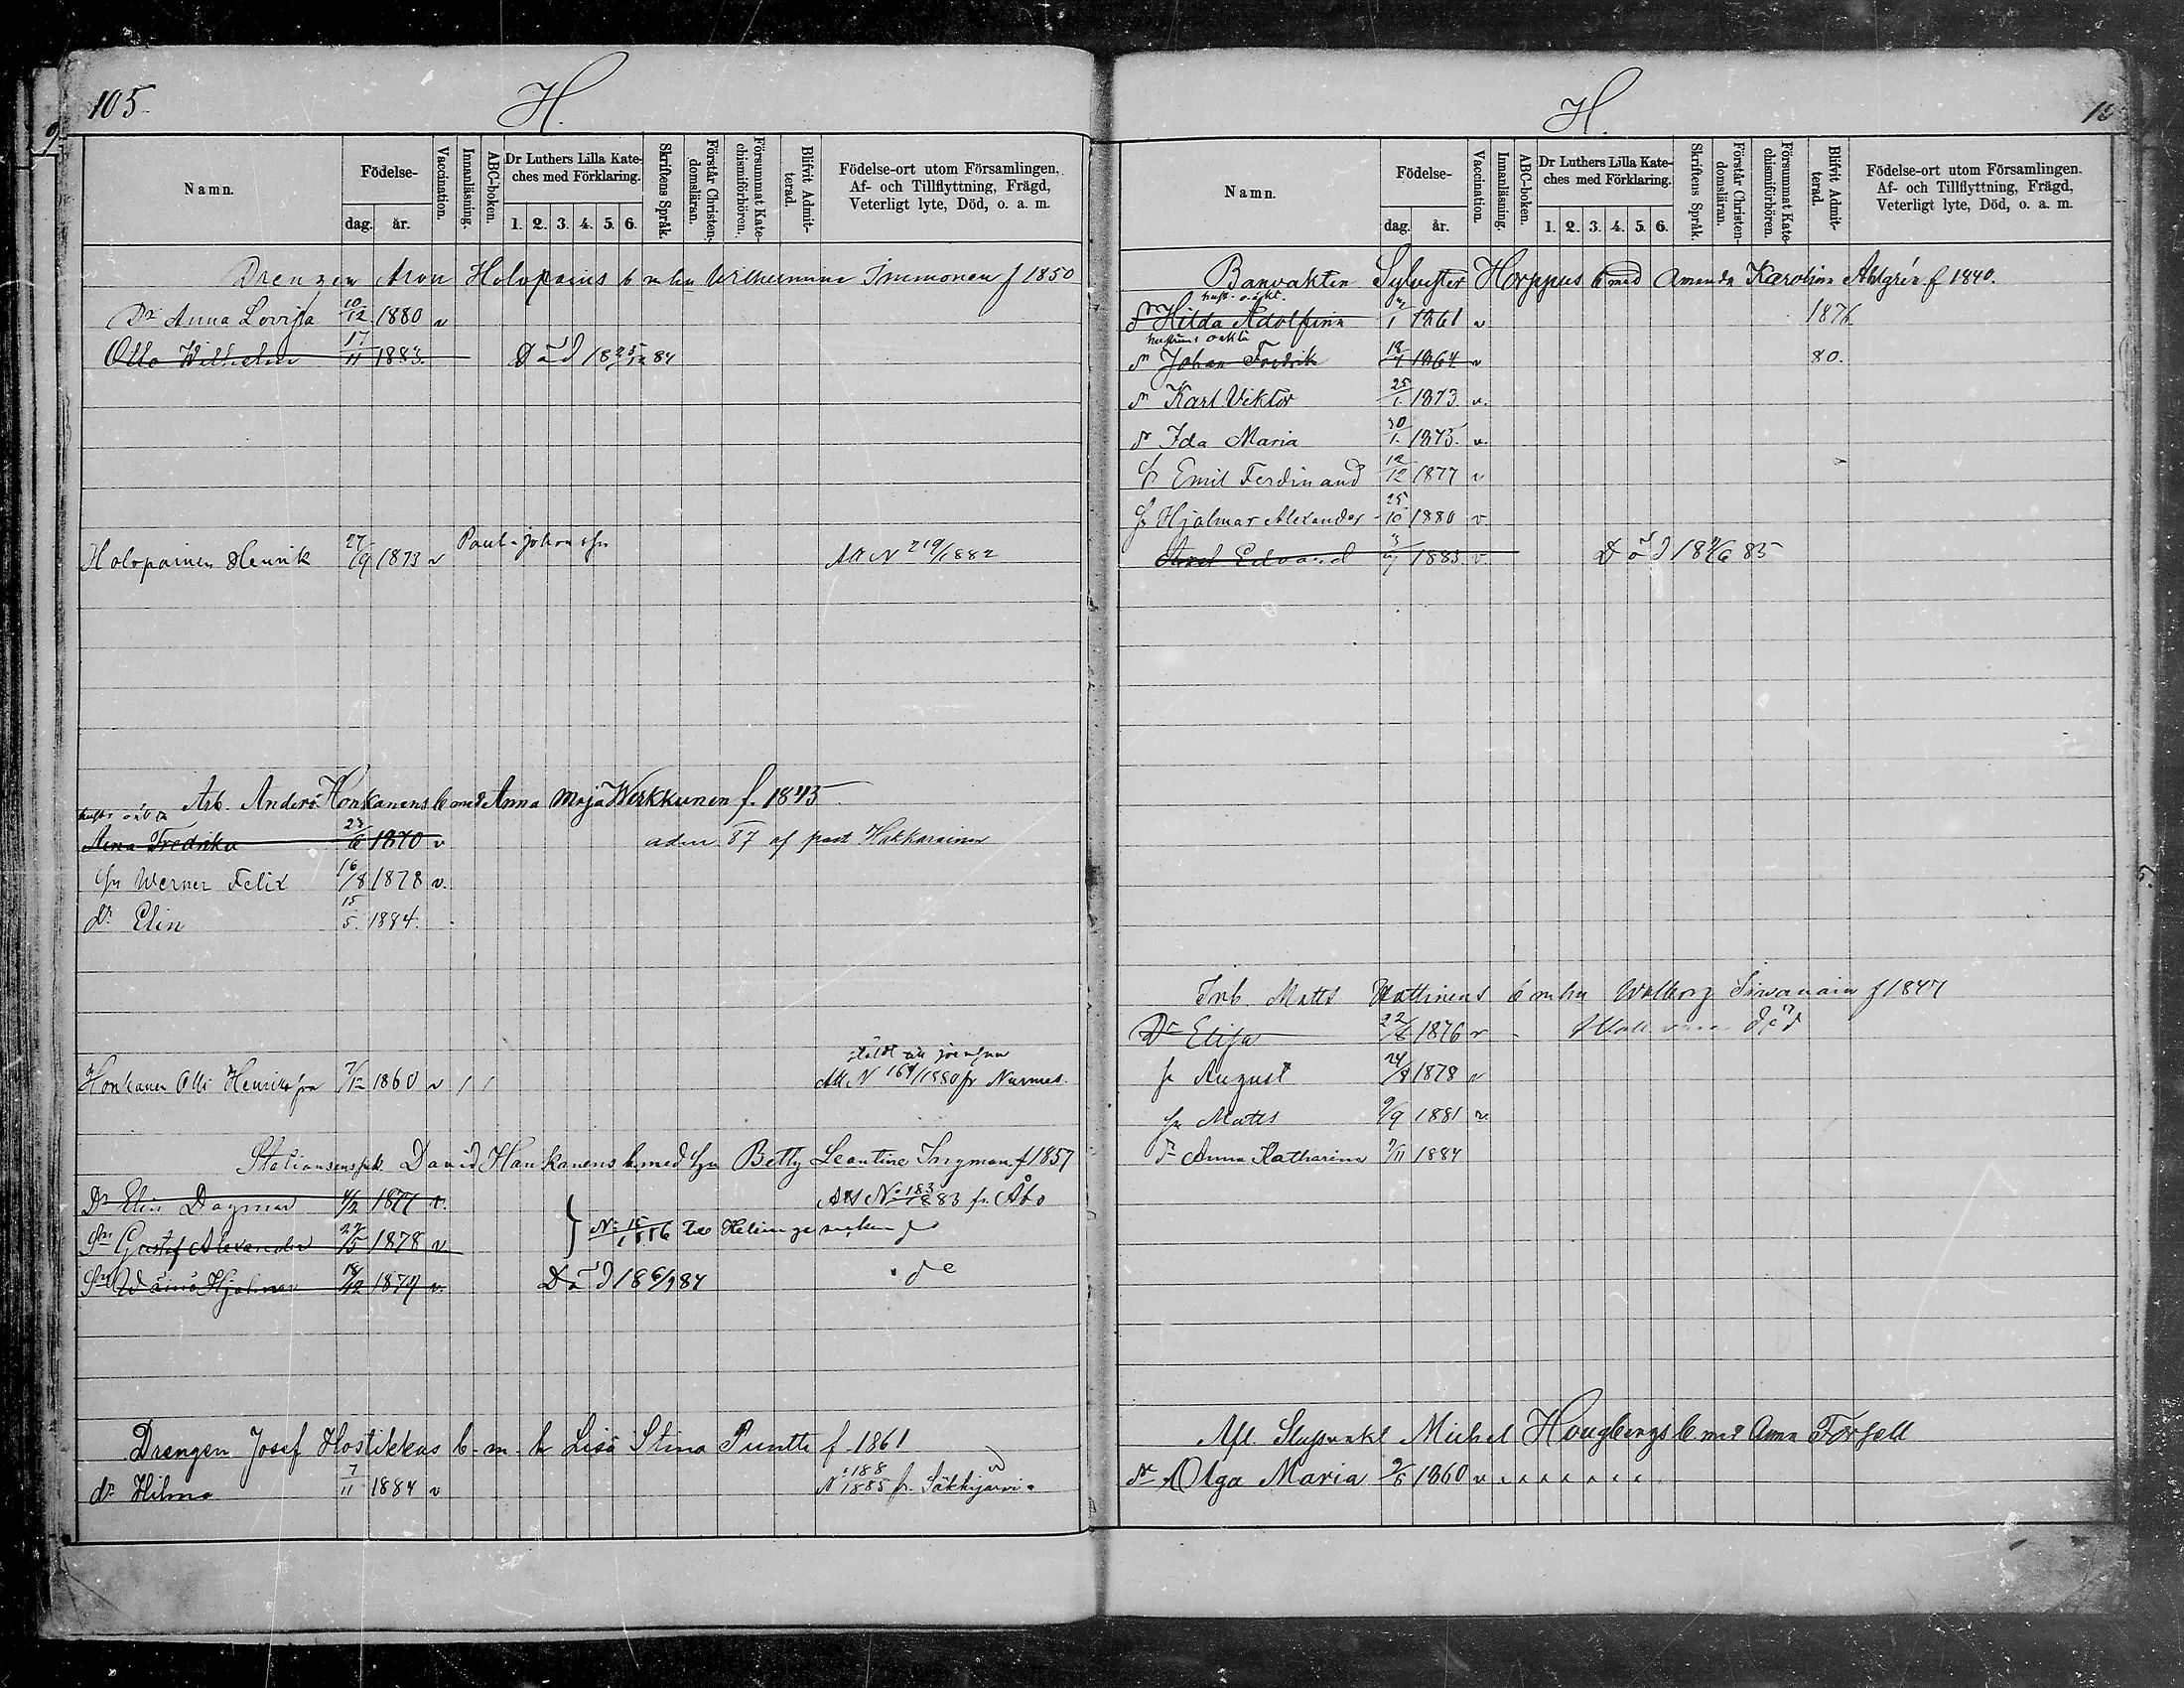 105.
H.
Namn.
Födelse-
dag.
år.
Vaccination.
Innanläsning.
ABC-boken.
Dr Luthers Lilla Kate-
ches med Förklaring.
1. 2. 3. 4. 5. 6.
Skriftens Språk.
Förstår Christen-
domsläran.
Försummat Kate-
chismiförhören.
Blifvit Admit-
terad.
Födelse-ort utom Församlingen,
Af- och Tillflyttning, Frägd,
Veterligt lyte, Död, o. a. m.
Drengen Aron Holopainens b m hu Wilhelmina Immonen f 1850
Dr Anna Lovisa 10/12 1880 v
Otto Wilhelm 17/11 1883. Död 18 84
Holopainen Henrik 27/9 1873 v Paul Johansson Att N 219/1882
Arb. Anders Honkanens b med Anna Maja Werkkunen f. 1845
hustr oäkta
Anna Fredrika 23/6 1870 v adm. 87 af past Hakkarainen
Sn Werner Felix 16/8 1878 v.
dr Elin 15/5 1884.
Honkanen Olli Henriksson 7/12 1860 v / / Att N 164/1880 fr Nurmes.
David Hankanens b med hu Betty Leontine Ingman f 1857
Dr Elin Dagmar 4/2 1877 v. Att No 183/1883 fr. Åbo
Sn Gustaf Alexander 27/5 1878 v No 15/1886 till Helsinge socken do
Sn Wäinö Hjalmar 18/12 1879 v. Död 18 6/9 84 do
Drengen Josef Hostikkas b. m. h Lisa Stina Puntti f. 1861
dr Hilma 7/11 1884 v No 188/1885 fr. Säkkijärvi.
H.
10
Namn.
Födelse-
dag.
år.
Vaccination.
Innanläsning.
ABC-boken.
Dr Luthers Lilla Kate-
ches med Förklaring.
1. 2. 3. 4. 5. 6.
Skriftens Språk.
Förstår Christen-
domsläran.
Försummat Kate-
chismiförhören.
Blifvit Admit-
terad.
Födelse-ort utom Församlingen.
Af- och Tillflyttning, Frägd,
Veterligt lyte, Död, o. a. m.
Banvakten Sylvester Horppus b med Amanda Karolina Ahlgrén f 1840.
hust. oäkt.
dr Hilda Adolfina 1861 v 1876
hustruns oäkta
sn Johan Fredrik 1864 v 80.
sn Karl Viktor 25/1 1873 v.
dr Ida Maria 30/1 1875. v.
Sn Emil Ferdinand 12/12 1877 v
Sn Hjalmar Alexander 25/10 1880 v.
Axel Edvard 1883. v. Död 18 85
Inb. Matts Hattinens b m hu Walborg f 1847
Dr Elisa 22/8 1876 v död
sn August 24/8 1878 v
Sn Matts 9/9 1881 v.
dr Anna Katharina 7/11 1884
Afl. Slussvakt Michel Hougbergs b med Anna Forsell
dr Olga Maria 9/5 1860 v